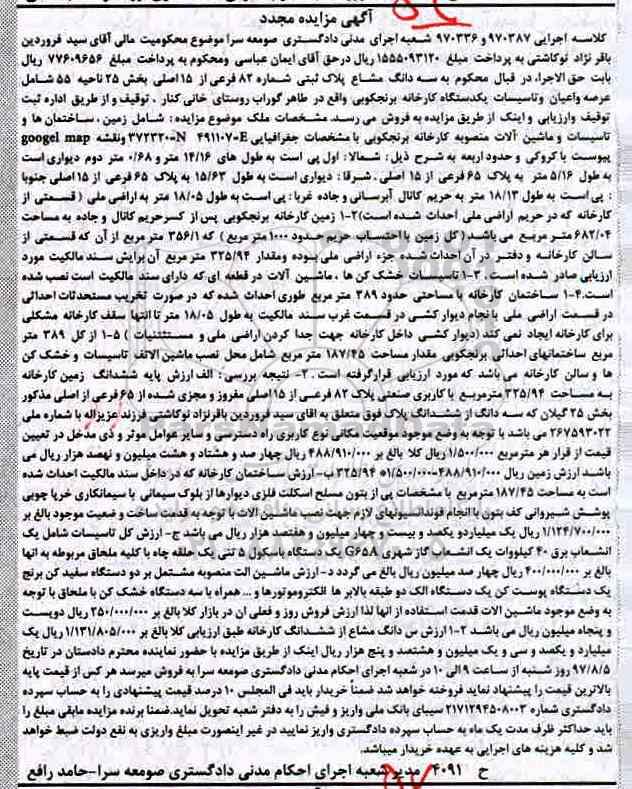 آگهی مزایده مجدد
کلاسه اجرایی ۹۷۰۳۸۷ و ۹۷۰۳۳۶ شعبه اجرای مدنی دادگستری صومعه سرا موضوع محکومیت مالی آقای سید فروردین
باقر نژاد نوکاشتی به پرداخت مبلغ ۱۵۵۵۰۹۳۱۲۰ ریال درحق آقای ایمان عباسی ومحکوم به پرداخت مبلغ ۷۷۶۰۹۶۵۶ ریال
بابت حق الاجرا، در قبال محکوم به سه دانگ مشاع پلاک ثبتی شماره ۸۲ فرعی از ۱۵ اصلی بخش ۲۵ ناحیه ۵۵ شامل
عرصه واعیان وتاسیسات یکدستگاه کارخانه برنجکوبی واقع در طاهر گوراب روستای خانی کنار ، توقیف و از طریق اداره ثبت
توقیف وارزیابی و اینک از طریق مزایده به فروش می رسد. مشخصات ملک موضوع مزایده : شامل زمین ، ساختمان ها و
تاسیسات و ماشین آلات منصوبه کارخانه برنجکوبی با مشخصات جغرافیایی ۴۹۱۱۰۷=E ۳۷۲۳۲۰=N ونقشه googel map
پیوست با کروکی و حدود اربعه به شرح ذیل : شمالا: اول پی است به طول های ۱۴/۱۶ متر و ۰/۶۸ متر دوم دیواری است
به طول ۵/۱۶ متر به پلاک ۶۵ فرعی از ۱۵ اصلی . شرقا : دیواری است به طول ۱۵/۶۳ به پلاک ۶۵ فرعی از ۱۵ اصلی جنوبا
: پی است به طول ۱۸/۱۳ متر به حریم کانال آبرسانی و جاده غربا : پی است به طول ۱۸/۰۵ متر به اراضی ملی ( قسمتی از
کارخانه که در حریم اراضی ملی احداث شده است)۲-۱ زمین کارخانه برنجکوبی پس از کسرحریم کانال و جاده به مساحت
۶۸۲/۰۴ متر مربع می باشد ( کل زمین با احتساب حریم حدود ۱۰۰۰ متر مربع ) که ۳۵۶/۱ متر مربع از آن که قسمتی از
سالن کارخانه و دفتر در آن احداث شده جزء اراضی ملی بوده ومقدار ۳۲۵/۹۴ متر مربع آن برایش سند مالکیت مورد
ارزیابی صادر شده است . ۳-۱ تاسیسات خشک کن ها ، ماشین آلات در قطعه ای که دارای سند مالکیت است نصب شده
است.۴-۱ ساختمان کارخانه با مساحتی حدود ۳۸۹ متر مربع طوری احداث شده که در صورت تخریب مستحدثات احداثی
در قسمت اراضی ملی با نجام دیوار کشی در قسمت غرب سند مالکیت به طول ۱۸/۰۵ متر تا انتها سقف کارخانه مشکلی
برای کارخانه ایجاد نمی کند (دیوار کشی داخل کارخانه جهت جدا کردن اراضی ملی و مستثنیات ) ۵-۱ از کل ۳۸۹ متر
مربع ساختمانهای احداثی برنجکوبی مقدار مساحت ۱۸۷/۴۵ متر مربع شامل محل نصب ماشین الاتف تاسیسات و خشک کن
ها و سالن کارخانه می باشد که مورد ارزیابی قرار گرفته است . ۲- نتیجه بررسی : الف ارزش پایه ششدانگ زمین کارخانه
به مساحت ۳۲۵/۹۴ مترمربع با کاربری صنعتی پلاک ۸۲ فرعی از ۱۵ اصلی مفروز و مجزی شده از ۶۵ فرعی از اصلی مذکور
بخش ۲۵ گیلان که سه دانگ از ششدانگ پلاک فوق متعلق به اقای سید فروردین باقرنژاد نوکاشتی فرزند عزیزاله با شماره ملی
۲۶۷۵۹۳۰۲۲ می باشد با توجه به وضع موجود موقعیت مکانی نوع کاربری راه دسترسی و سایر عوامل موثر و ذی مدخل در تعیین
قیمت از قرار هر مترمربع ۱/۵۰۰/۰۰۰ ریال کلا بالغ بر ۴۸۸/۹۱۰/۰۰۰ ریال چهار صد و هشتاد و هشت میلیون و نهصد هزار ریال می
باشد ارزش زمین ریال ۴۸۸/۹۱۰/۰۰۰=۱/۵۰۰/۰۰۰* ۳۲۵/۹۴ ب- ارزش ساختمان کارخانه که در داخل سند مالکیت احداث شده
است به مساحت ۱۸۷/۴۵ مترمربع با مشخصات پی از بتون مسلح اسکلت فلزی دیوارها از بلوک سیمانی با سیمانکاری خرپا چوبی
پوشش شیروانی کف بتون با انجام فونداسیونهای لازم جهت نصب ماشین الات با توجه به قدمت ساخت و ضعیت موجود بالغ بر
۱/۱۲۴/۷۰۰/۰۰۰ ریال یک میلیاردو یکصد و بیست و چهار میلیون و هفتصد هزار ریال می باشد ج- ارزش کل تاسیسات شامل یک
انشعاب برق ۴۰ کیلووات یک انشعاب گاز شهری G۶۵A یک دستگاه باسکول ۵ تنی یک حلقه چاه با کلیه ملحقات مربوطه به انها
بالغ بر ۴۰۰/۰۰۰/۰۰۰ ریال چهار صد میلیون ریال بالغ می گردد د- ارزش ماشین الت منصوبه مشتمل بر دو دستگاه سفید کن برنج
یک دستگاه پوست کن یک دستگاه الک دو طبقه بالابر ها الکتروموتورها و ... همراه با سه دستگاه خشک کن با ملحاق با توجه
به وضع موجود ماشین الات قدمت استفاده از انها لذا ارزش فروش روز و فعلی ان در بازار کلا بالغ بر ۲۵۰/۰۰۰/۰۰۰ ریال دویست
و پنجاه میلیون ریال می باشد ۲-۱ ارزش س دانگ مشاع از ششدانگ کارخانه طبق ارزیابی کلا بالغ بر ۱/۱۳۱/۸۰۵/۰۰۰ ریال یک
میلیارد و یکصد و سی و یک میلیون و هشتصد و پنج هزار ریال اینک از طریق مزایده با حضور نماینده محترم دادستان در تاریخ
۹۷/۸/۵ روز شنبه از ساعت ۹ الی ۱۰ در شعبه اجرای احکام مدنی دادگستری صومعه سرا به فروش میرسد هر کس از قیمت پایه
بالاترین قیمت را پیشنهاد نماید فروخته خواهد شد ضمناً خریدار باید فی المجلس ۱۰ درصد قیمت پیشنهادی را به حساب سپرده
دادگستری شماره ۲۱۷۱۲۹۴۵۰۸۰۰۳ سیبای بانک ملی واریز و فیش را به دفتر شعبه تحویل نماید.ضمنا برنده مزایده مابقی مبلغ را
باید حداکثر ظرف مدت یک ماه به حساب سپرده دادگستری واریز نمایید در غیر اینصورت مبلغ واریزی به نفع دولت ضبط خواهد
شد و کلیه هزینه های اجرایی به عهده خریدار میباشد.
ح ۴۰۹۱ مدیر شعبه اجرای احکام مدنی دادگستری صومعه سرا-حامد رافع